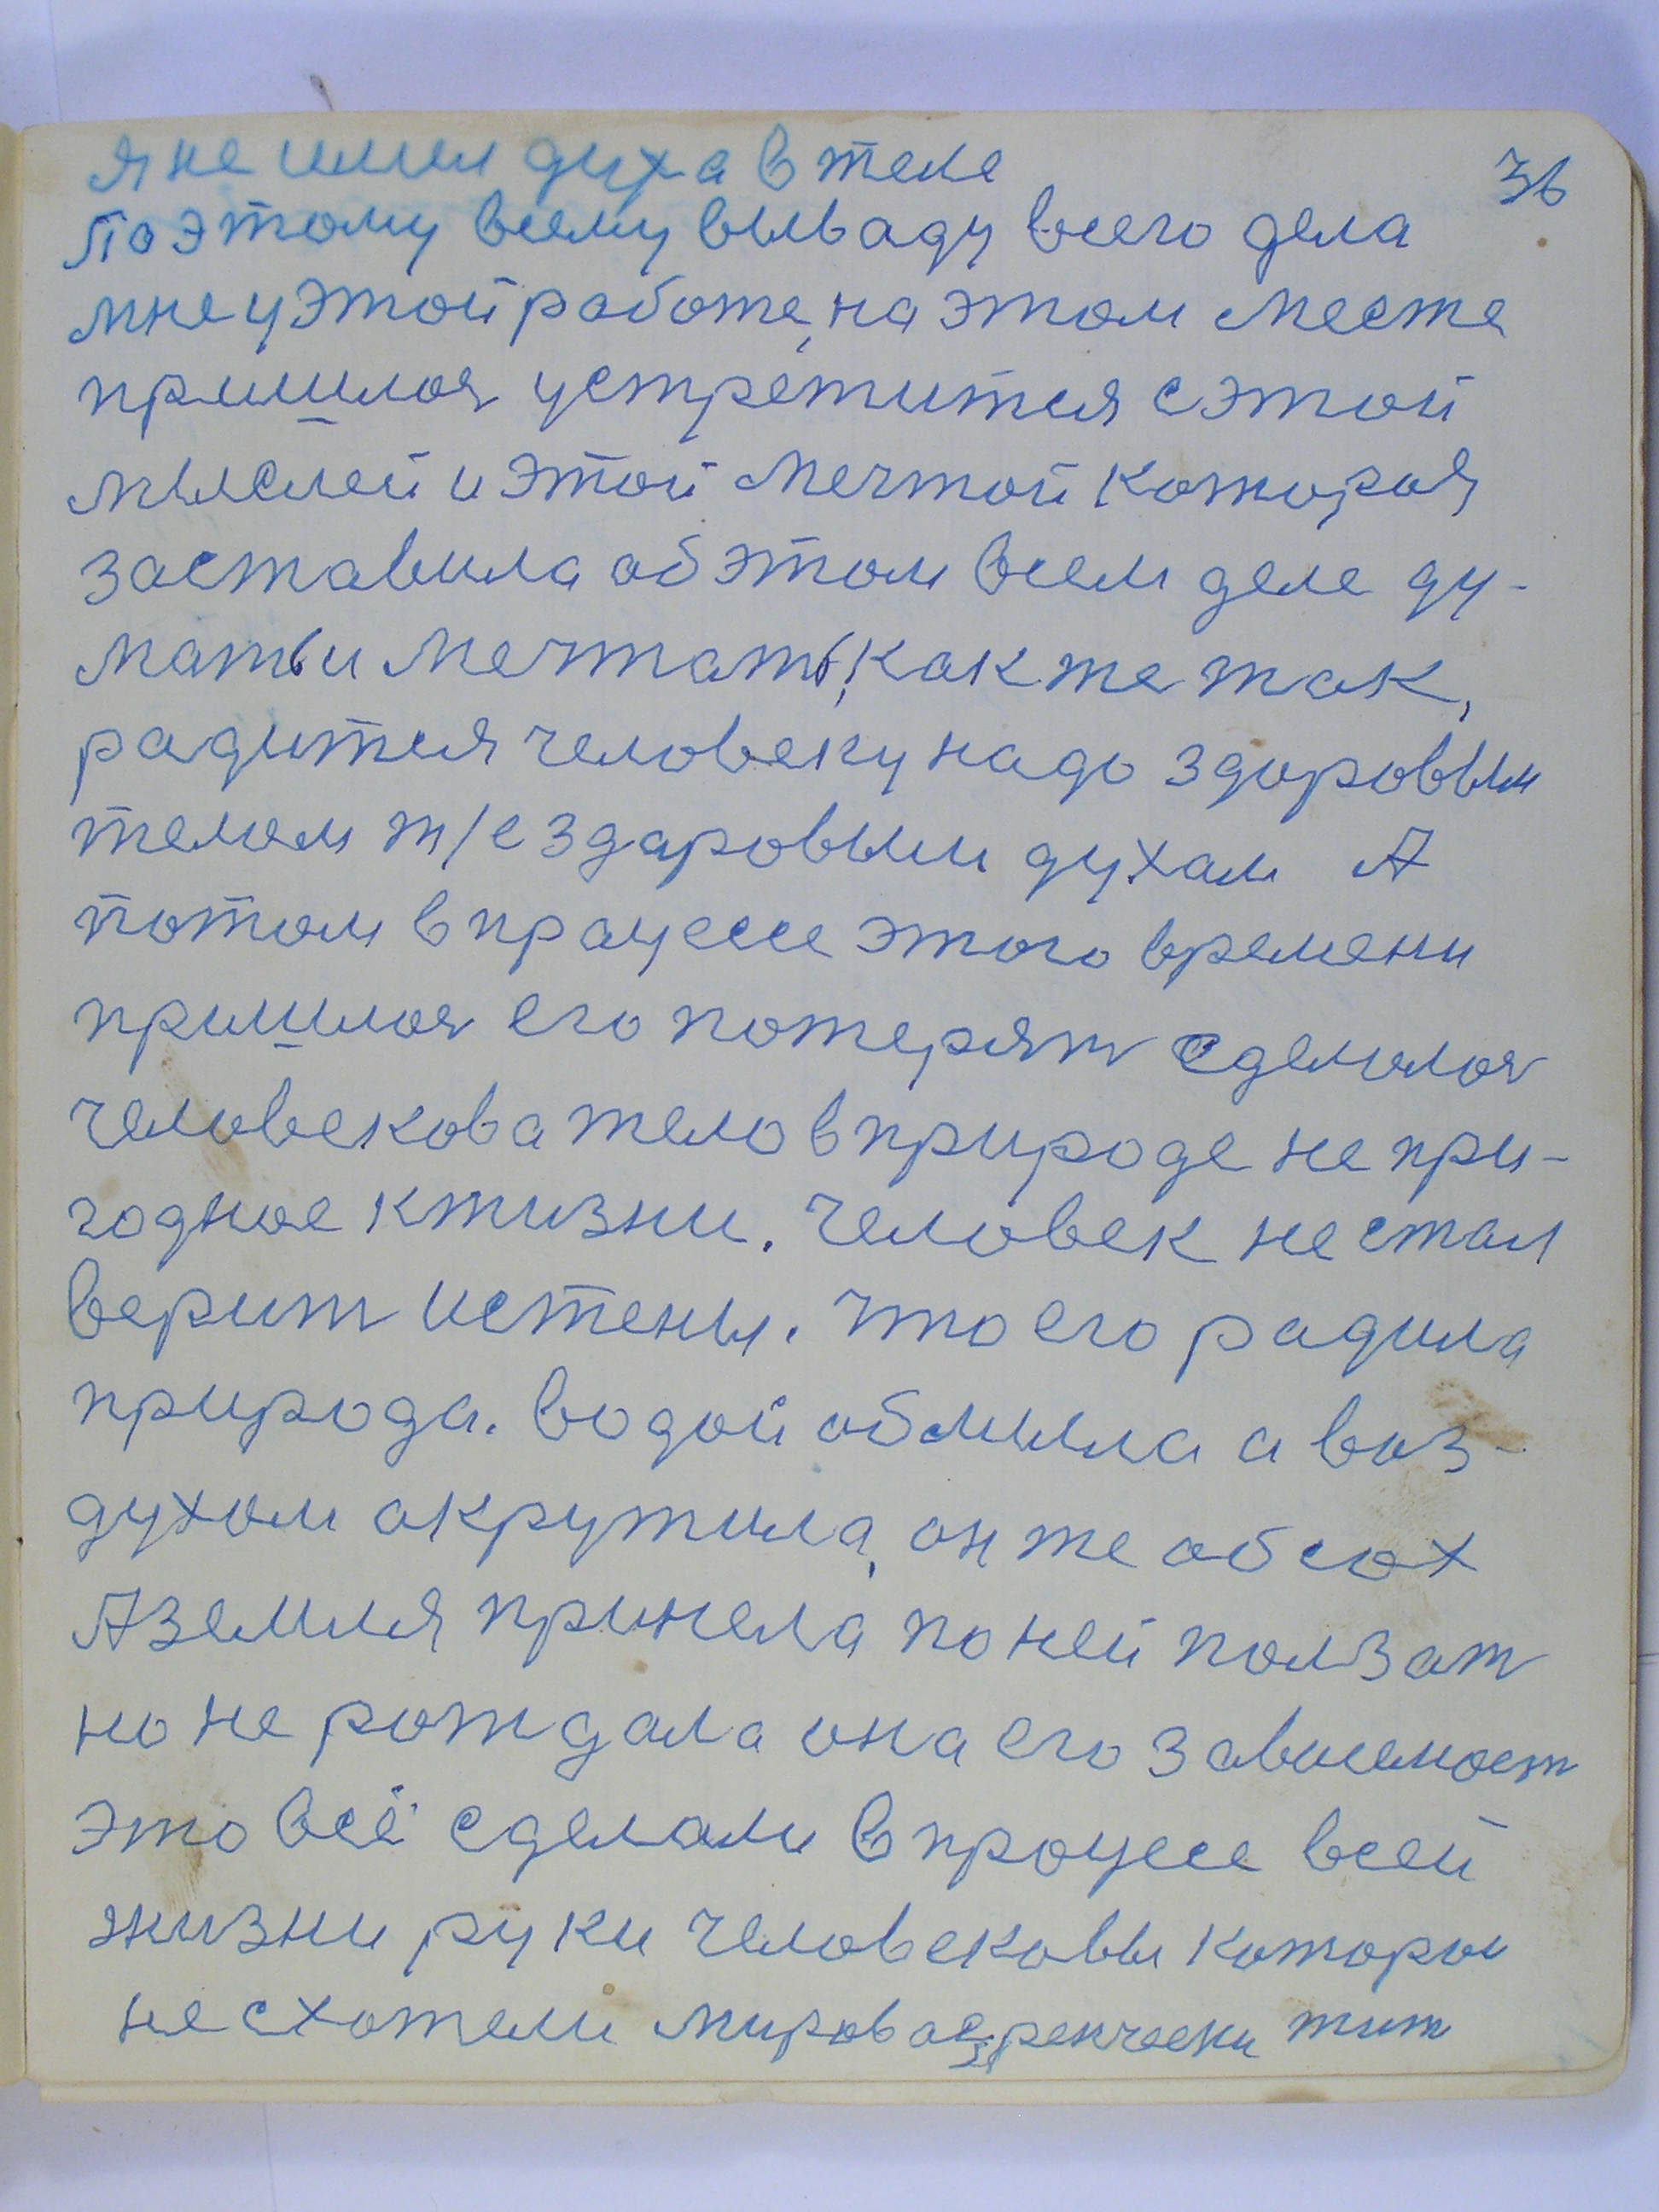 36
я не имел духа в теле
Поэтому всему вываду всего дела
мне у этой работе, на этом месте
пришлоя устретится с этой
мыслей и этой мечтой которая
заставила об этом всем деле ду-
мать и мечтать, как же так,
радится человеку надо здоровым
телом т/е здаровым духам А
потом в працессе этого времени
пришлоя его потерят сделалоя
человекова тело в природе не при-
годное к жизни. Человек не стал
верит истены. Что его радила
природа. Водой обмыла а воз-
духом акружила, он же обсох
А земля принела по ней ползат
но не рождала она его зависемост
это всё сделали в процесе всей
жизни руки человековы которы
не схотели мировазренчески жит